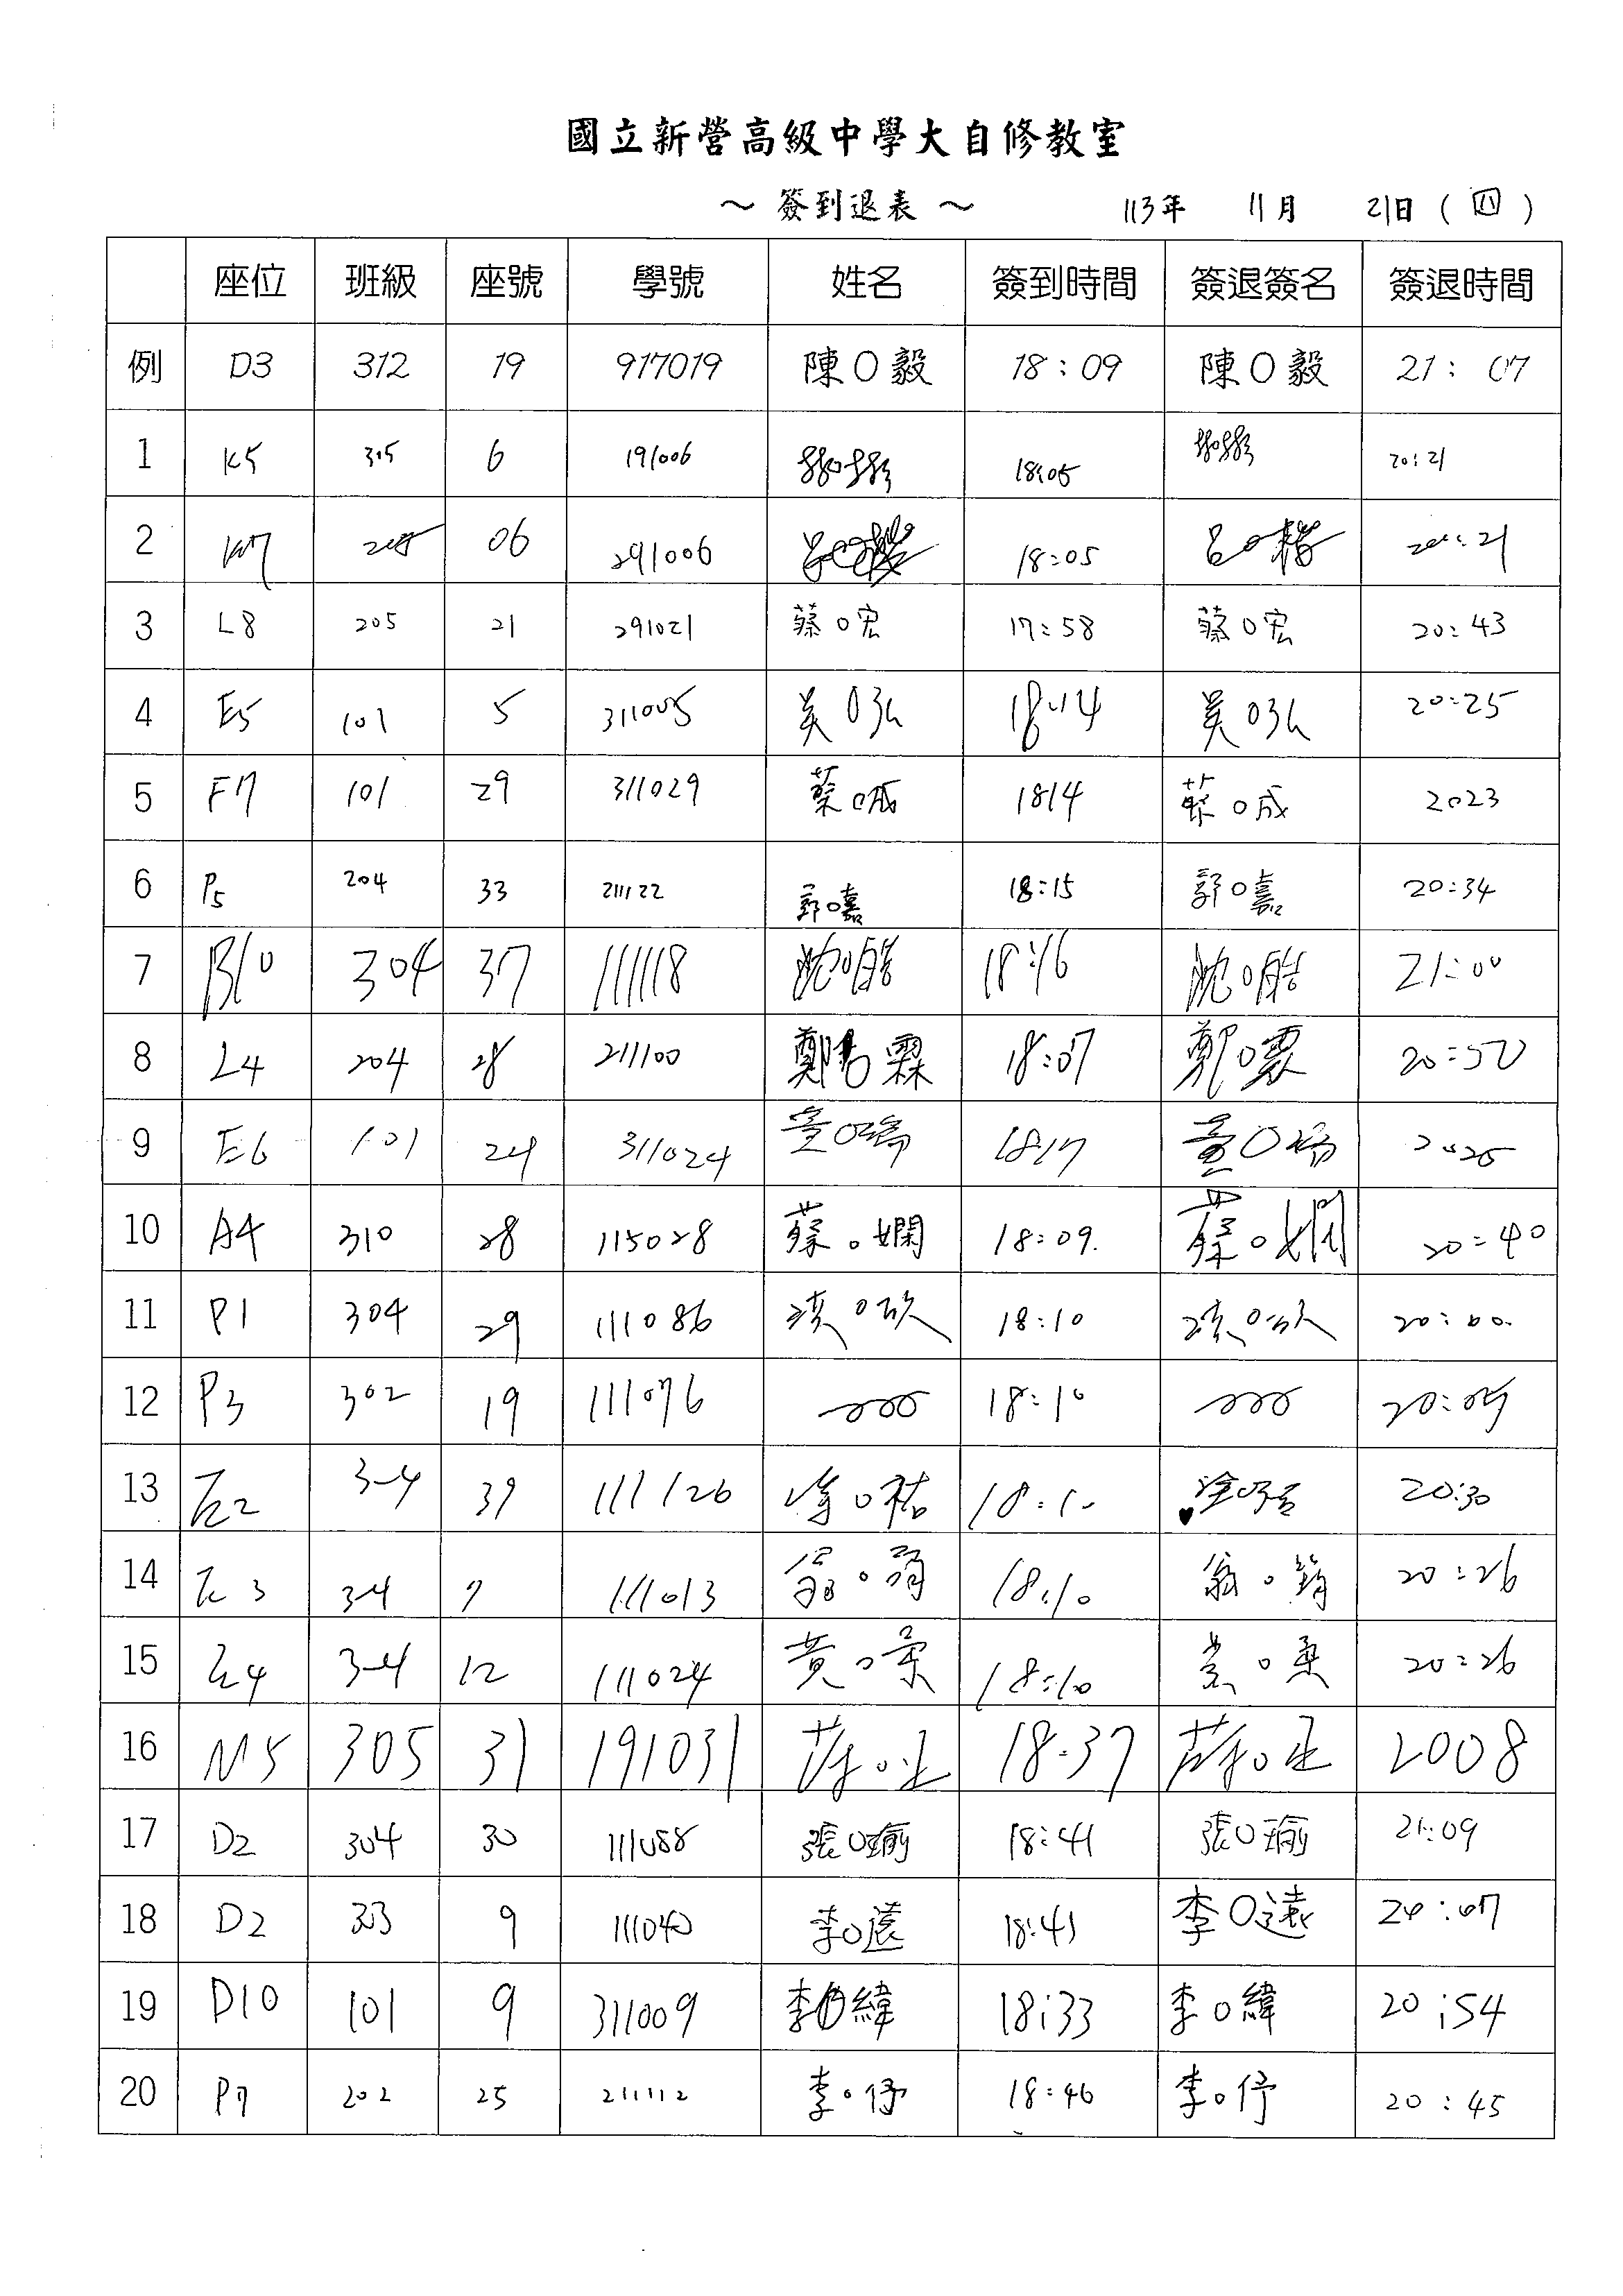 國立新營高級中學大自修教室
～ 簽到退表 ～ 113年 11月 21日 ( 四 )
座位 班級 座號 學號 姓名 簽到時間 簽退簽名 簽退時間
例 D3 312 19 917019 陳O毅 18:09 陳O毅 21:07
1 K5 305 6 191006 18:05 20:21
2 K7 205 06 291006 18:05 呂O楷 20:21
3 L8 205 21 291021 蔡O宏 17:58 蔡O宏 20:43
4 E5 101 5 311005 吳O弘 18:14 吳O弘 20:25
5 F7 101 29 311029 蔡O成 1814 蔡O成 2023
6 P5 204 33 211122 郭O嘉 18:15 郭O嘉 20:34
7 B10 304 37 111118 沈O皓 18:16 沈O皓 21:00
8 L4 204 28 211100 鄭O霖 18:07 鄭O霖 20:50
9 E6 101 24 311024 童O瑀 1817 童O瑀 2025
10 A4 310 28 115028 蔡O嫻 18:09. 蔡O嫻 20:40
11 P1 304 29 111086 18:10 20:00.
12 P3 302 19 111076 18:10 20:09
13 左2 3-4 39 111126 涂O祐 18:10 涂O祐 20:30
14 左3 34 7 111013 翁O 18:10 翁O 20:26
15 左4 3-4 12 111024 黃O柔 18:10 黃O柔 20:26
16 M5 305 31 191031 18:37 2008
17 D2 304 30 111088 張O瑜 18:41 張O瑜 21:09
18 D2 303 9 111040 李O遠 18:41 李O遠 20:07
19 D10 101 9 311009 李O緯 18:33 李O緯 20:54
20 P7 202 25 211112 李O伃 18:46 李O伃 20:45